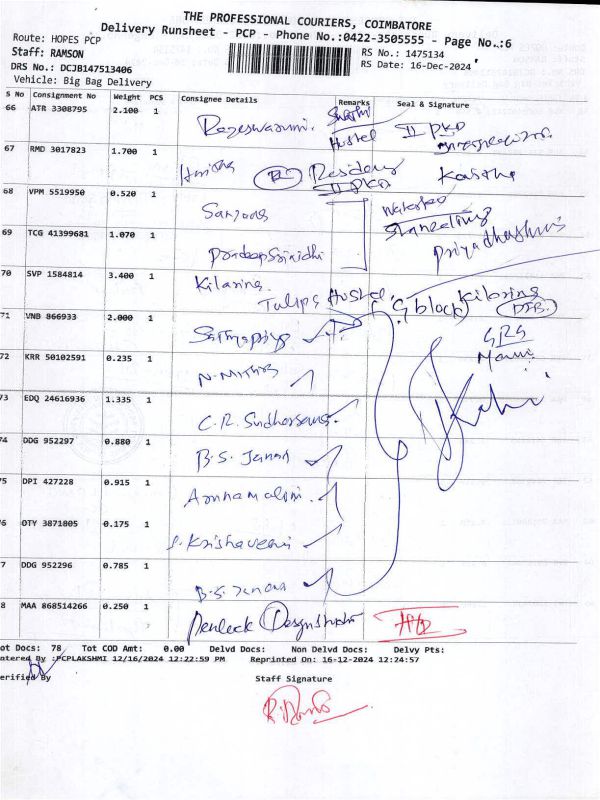 THE PROFESSIONAL COURIERS, COIMBATORE
Delivery Runsheet - PCP - Phone No.:0422-3505555 - Page No.:6
Route: HOPES PCP
Staff: RAMSON
RS No.: 1475134
DRS No.: DCJB147513406
RS Date: 16-Dec-2024
Vehicle: Big Bag Delivery
S No Consignment No Weight PCS Consignee Details Remarks Seal & Signature
66 ATR 3308795 2.100 1
Hostel II PKD
67 RMD 3017823 1.700 1
II PKD
68 VPM 5519950 0.520 1 Sanjana
69 TCG 41399681 1.070 1 Pradeep Srinidhi Priyadharshini
70 SVP 1584814 3.400 1 Kilaring
Tulips Hostel G block Kilaring
71 VNB 866933 2.000 1 Sathyapriya
72 KRR 50102591 0.235 1 N. Mithra
73 EDQ 24616936 1.335 1 C.R. Sudharsana
74 DDG 952297 0.880 1 B.S. Janani
75 DPI 427228 0.915 1 Arunamalini
76 OTY 3871805 0.175 1 S. Krishaveni
7 DDG 952296 0.785 1 B.S. Janani
8 MAA 868514266 0.250 1
ot Docs: 78 Tot COD Amt: 0.00 Delvd Docs: Non Delvd Docs: Delvy Pts:
ntered By :PCPLAKSHMI 12/16/2024 12:22:59 PM Reprinted On: 16-12-2024 12:24:57
erified By Staff Signature